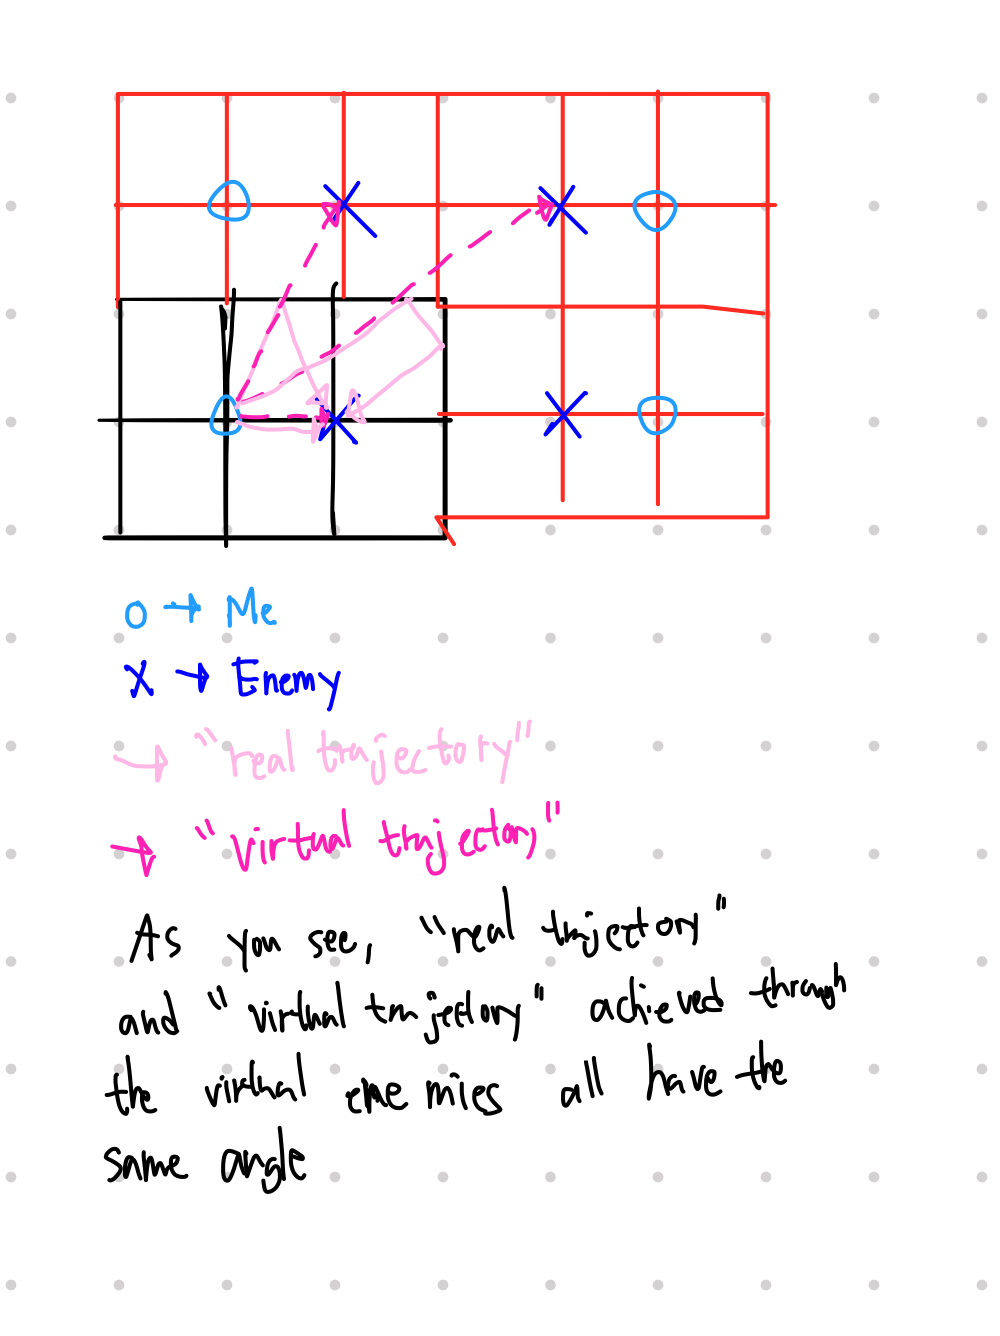 O → Me
X → Enemy
→ "real trajectory"
→ "virtual trajectory"
As you see, "real trajectory"
and "virtual trajectory" achieved through
the virtual enemies all have the
same angle